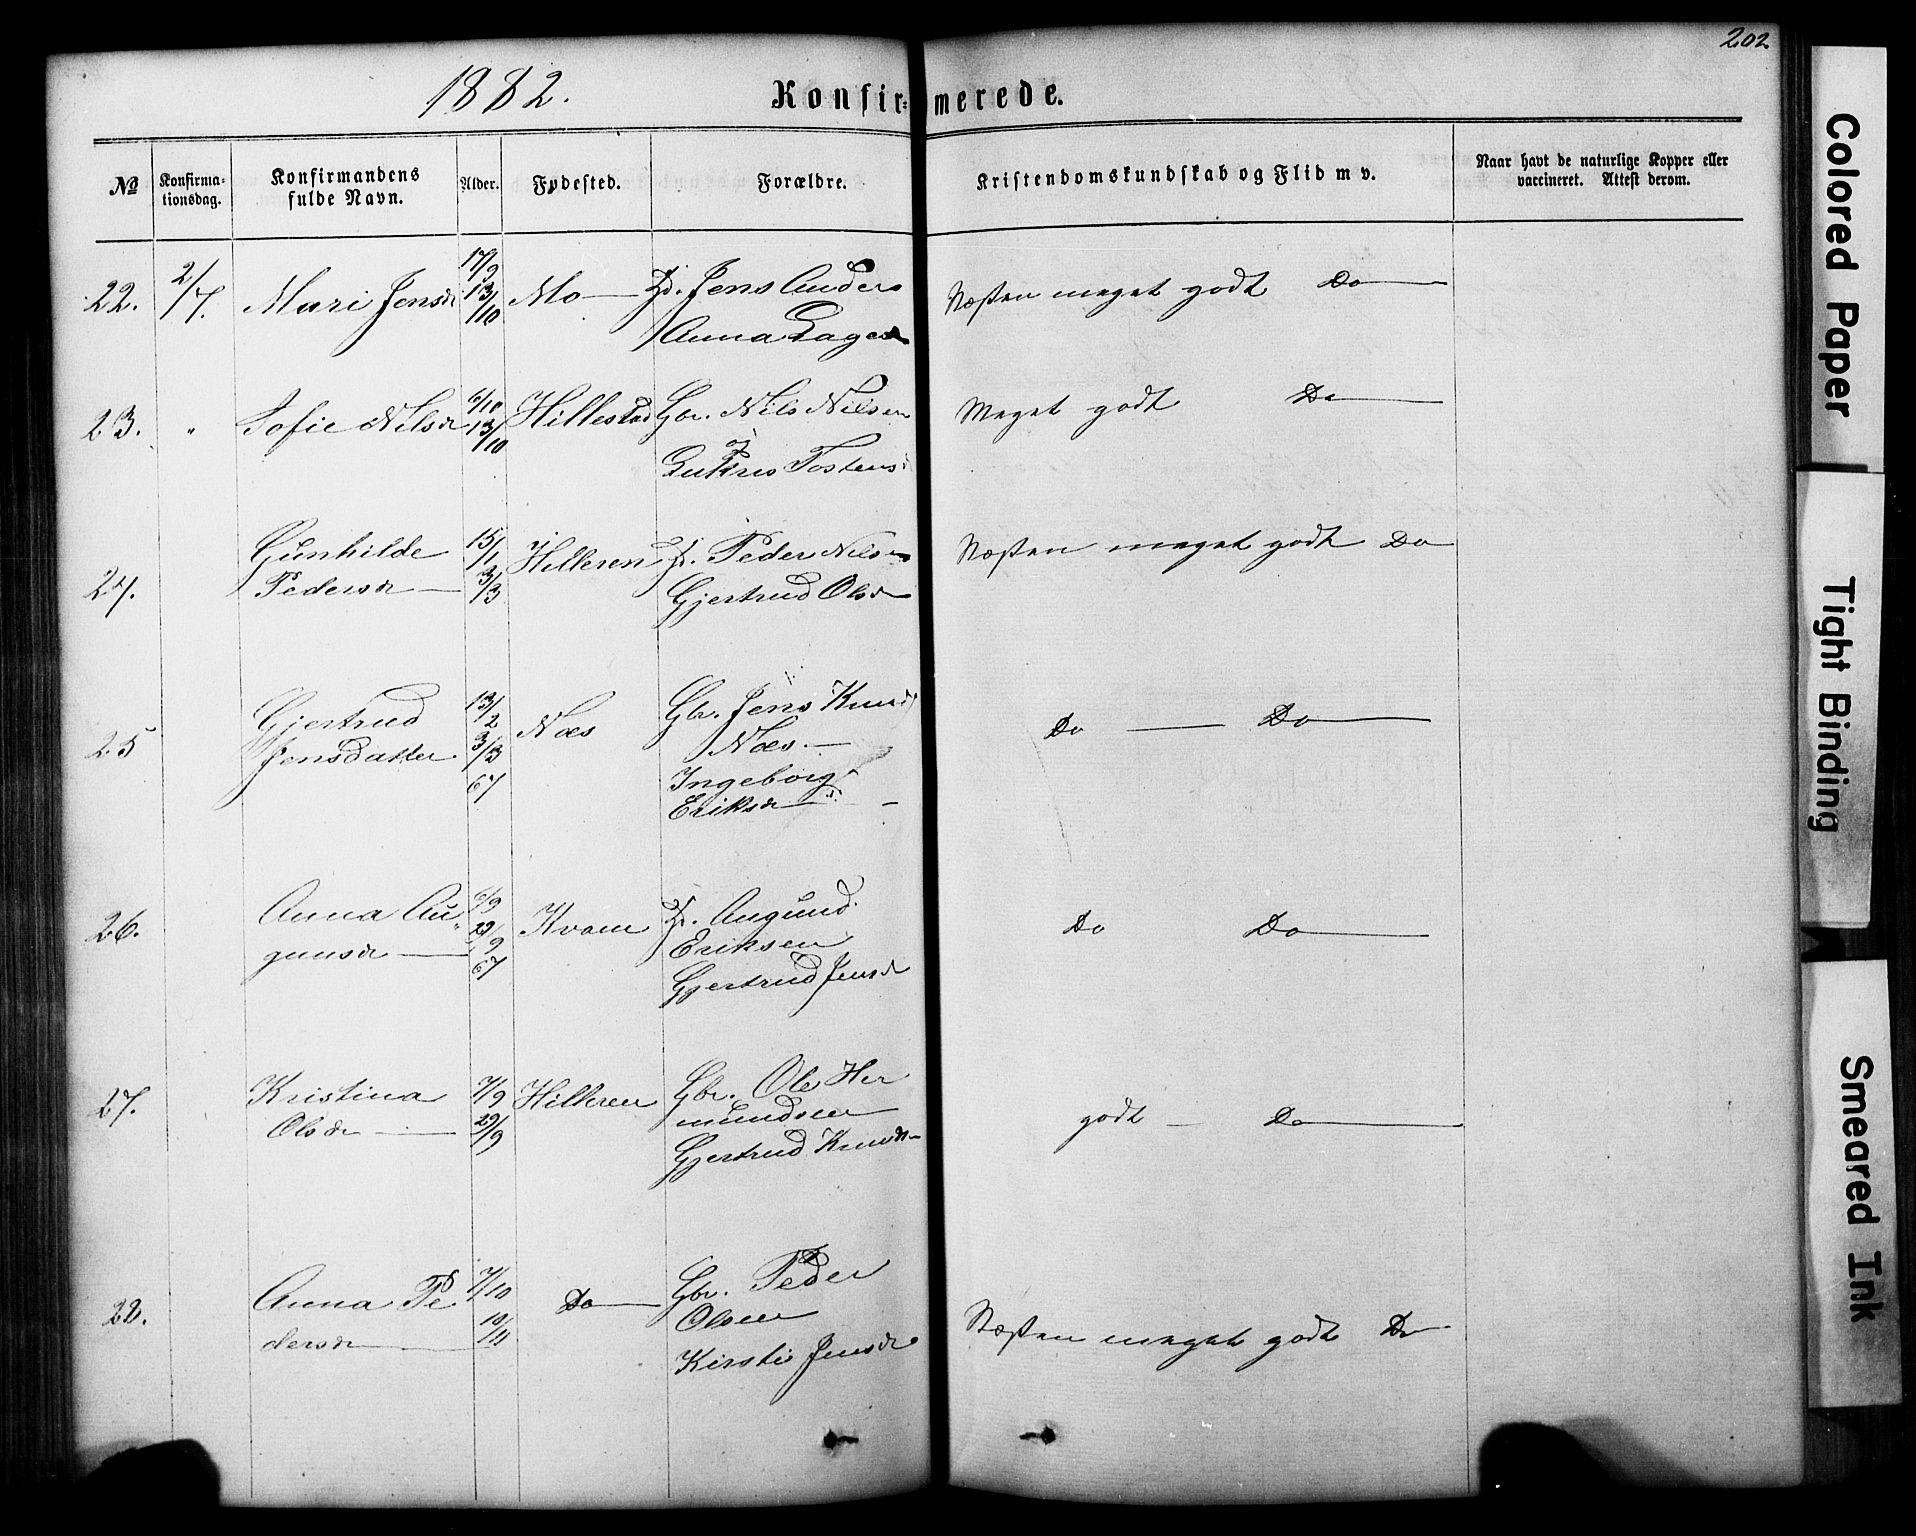 202
1882.
Konfir=merede.
№
Konfirma-
tionsdag.
Konfirmandens
fulde Navn.
Alder.
Fødested.
Forældre.
Kristendomskundskab og Flid m v.
Naar havt de naturlige Kopper eller
vaccineret. Attest derom.
22. 2/7. Mari Jensdr 17/9 13/10 Mo — Jens Anders
Anna Lages
Næsten meget godt Do —
23. " Sofie Nilsdr 6/10 13/10 Hillestad Gbr. Nils Nilsen
og
Tostens
Meget godt Do —
24. Gunhilde
Pedersdr — 15/1 3/3 Hilleren Peder Nilsen
Gjertrud Olsdr
Næsten meget godt Do
25 Gjertrud
Jensdatter 13/2 3/3 67 Næs Gbr. Jens Knud
Næs. —
Ingeborg
Eriksdr —
Do — Do —
26. Anna Au
gunsdr — 6/9 29/9 67 Kvam Augund
Eriksen
Gjertrud Jensdr
Do Do —
27. Kristina
Olsdr — 7/9 29/9 Hilleren Gbr. Ole Her
mundsen
Gjertrud Knudsdr
godt — Do —
28. Anna Pe
dersdr — 7/10 10/11 Do — Gbr. Peder
Olsen
Kirsti Jensdr
Næsten meget godt Do
Colored Paper
Tight Binding
Smeared Ink